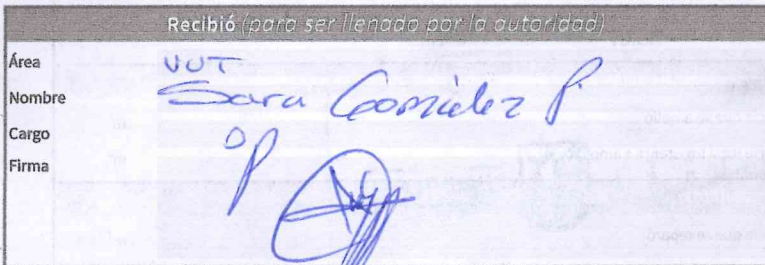 Recibió (para ser llenado por la autoridad)
Área VUT
Nombre Sara González P.
Cargo OP
Firma